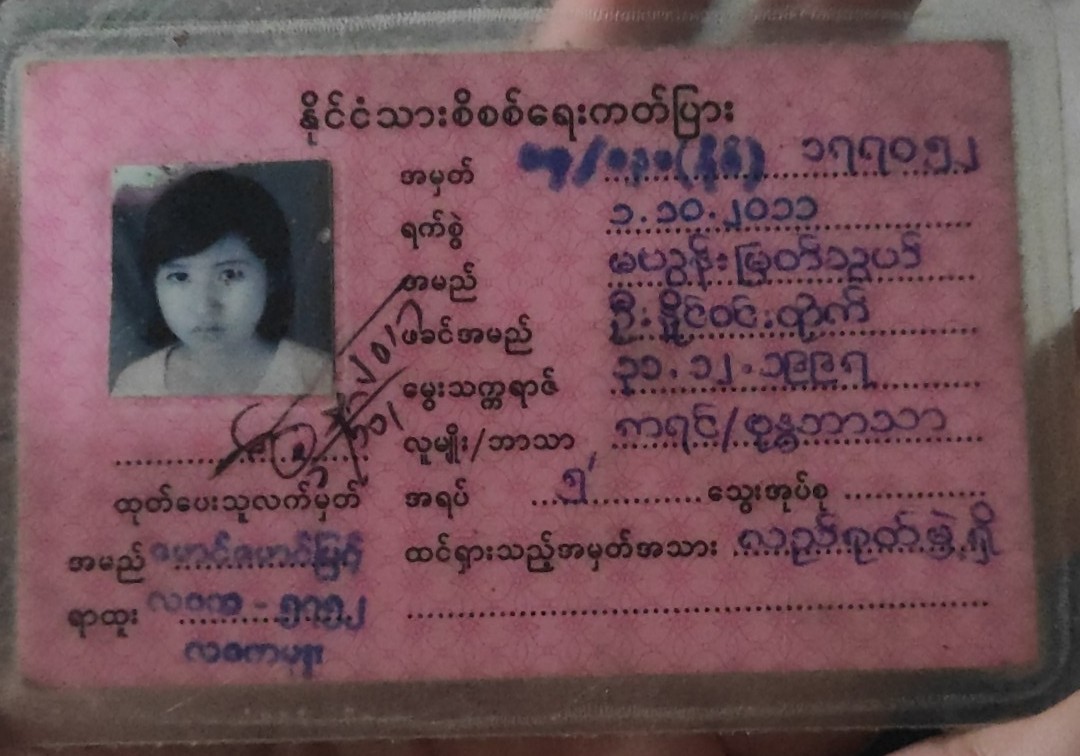 နိုင်ငံသားစိစစ်ရေးကတ်ပြား
အမှတ် ၁၇၇၀၅၂
ရက်စွဲ ၁.၁၀.၂၀၁၁
အမည် မယွန်းမြတ်သွယ်
ဖခင်အမည် ဦးနိုင်ဝင်းထိုက်
မွေးသက္ကရာဇ် ၃၁.၁၂.၁၉၉၇
လူမျိုး/ဘာသာ ကရင်/ဗုဒ္ဓဘာသာ
အရပ် ၅' သွေးအုပ်စု
ထင်ရှားသည့်အမှတ်အသား လည်ရုတ်မှဲ့ရှိ
ထုတ်ပေးသူလက်မှတ်
အမည် မောင်မောင်မြင့်
ရာထူး လဝက - ၅၇၅၂
လဝကမှူး